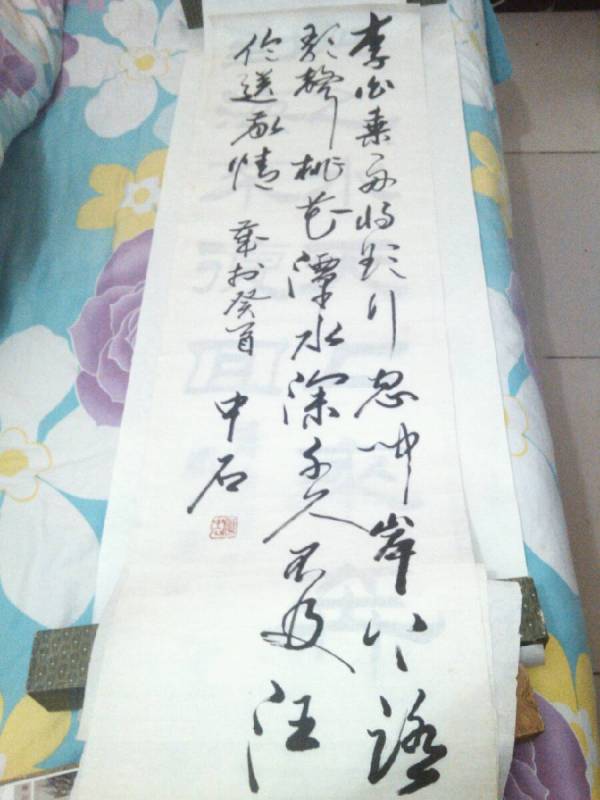 李白乘舟将欲行忽闻岸上踏
歌聲桃花潭水深千尺不及汪
伦送我情 癸酉 中石